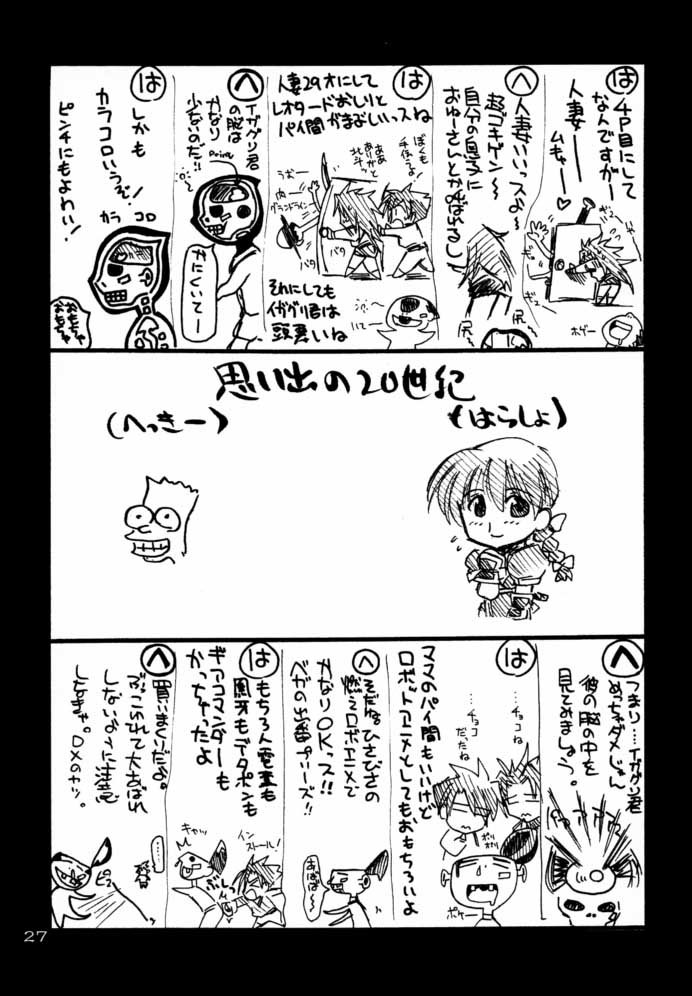 は
4P目にして
なんですがー
人妻ー
ムキャー♡
ギュ
ボゲー
へ
人妻いいっスよ〜
超ゴキゲン〜
自分の息子に
おゆーさんとか呼ばれるし
尻〜
尻〜
は
人妻29才にして
レオタードおしりと
パイ間がまぶしいっスね
ぼくも
手伝うよ!
ああ
ありがと
北斗っ
うおー
肉ー
グランドライン
バタ
バタ
それにしても
イガグリ君は
頭悪いね
へ
イガグリ君
の脳は
かなり
少ないのだ!!
Point
かにくいてー
は
しかも
カラコロいうぞ!
カラ
コロ
ピンチにもよわい!
おもちゃ
おもちゃ
思い出の20世紀
(はらしょ)
(へっきー)
へ
つまり…イガグリ君
めっちゃダメじゃん
彼の脳の中を
見てみましょう。
ドゥアアアア
は
…チョコね
…チョコ
だったね
ポリ
ポリ
ママのパイ間もいいけど
ロボットアニメとしてもおもちろいよ
ポケー
へ
そだねひさびさの
燃えロボアニメで
かなりOKっス!!
ベガの出番プリーズ!!
あばば〜
は
もちろん電童も
凰牙もデータポンも
ギアコマンダーも
かっちゃったよ
イン
ストール!
キャッ
へ
買いまくりだよ。
ぶっこわれて大あばれ
しないように注意
しなきゃ。DXのヤツ。
……
27